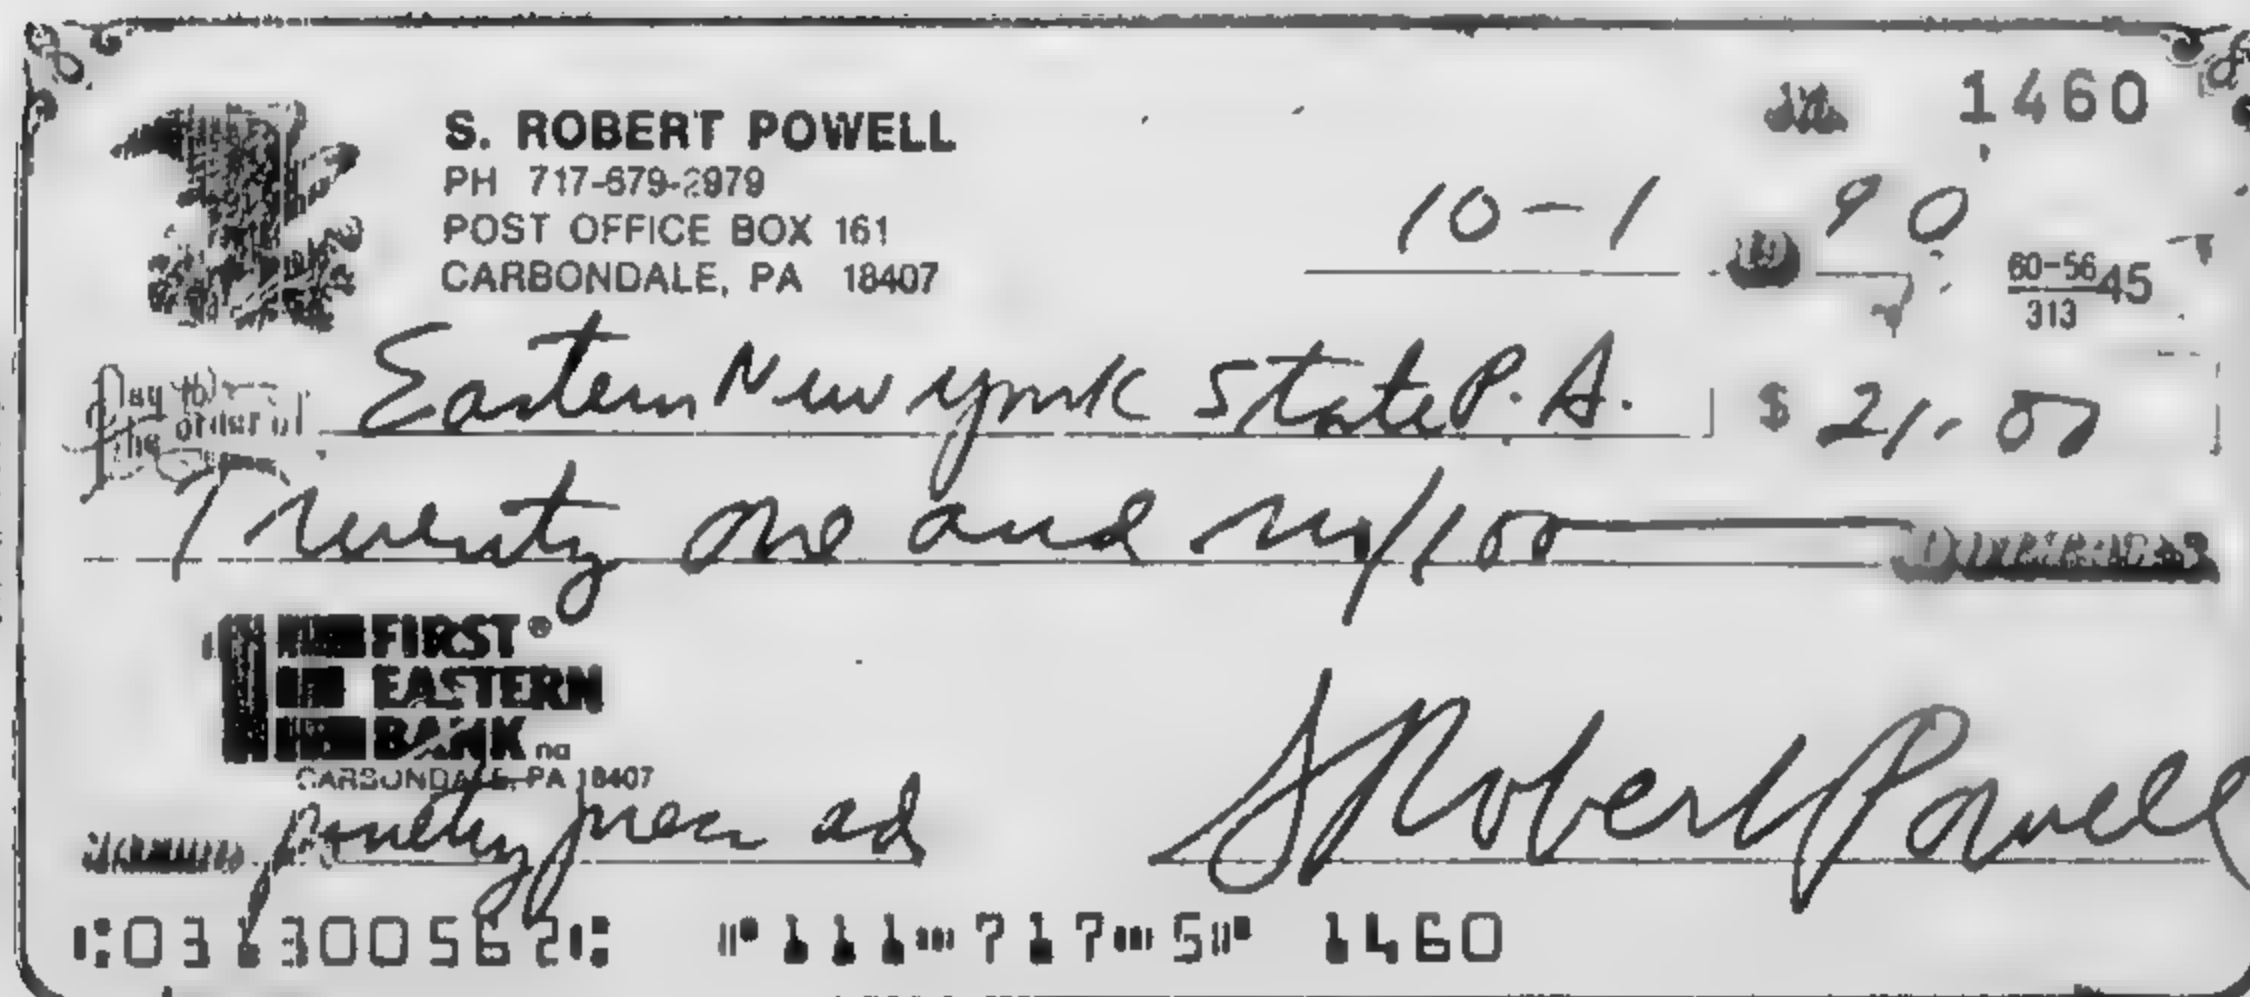 No. 1460
S. ROBERT POWELL
PH 717-679-2979
POST OFFICE BOX 161
CARBONDALE, PA 18407
10-1 19 90
60-56 45
313
Pay to the order of Eastern New York State P.A. $ 21.00
Twenty one and no/100 DOLLARS
FIRST®
EASTERN
BANK na
CARBONDALE, PA 18407
poultry ad
S Robert Powell
⑆031300562⑆ ⑈111⑉717⑉5⑈ 1460